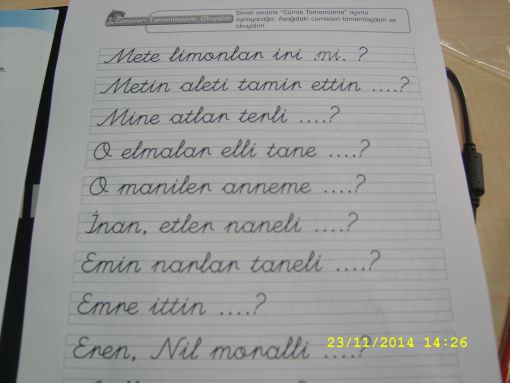 1. Cümleleri Tamamlayalım, Okuyalım
Şimdi seninle "Cümle Tamamlama" oyunu
oynayacağız. Aşağıdaki cümleleri tamamlayalım ve
okuyalım.
Mete limonlar iri mi. ?
Metin aleti tamir ettin ....?
Mine atlar terli ....?
O elmalar elli tane ....?
O maniler anneme ....?
İnan, etler naneli ....?
Emin narlar taneli ....?
Emre ittin ....?
Eren, Nil moralli ....?
23/11/2014 14:26